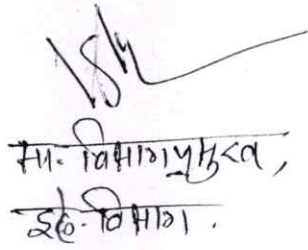 मा. विभागप्रमुख,
इले. विभाग.